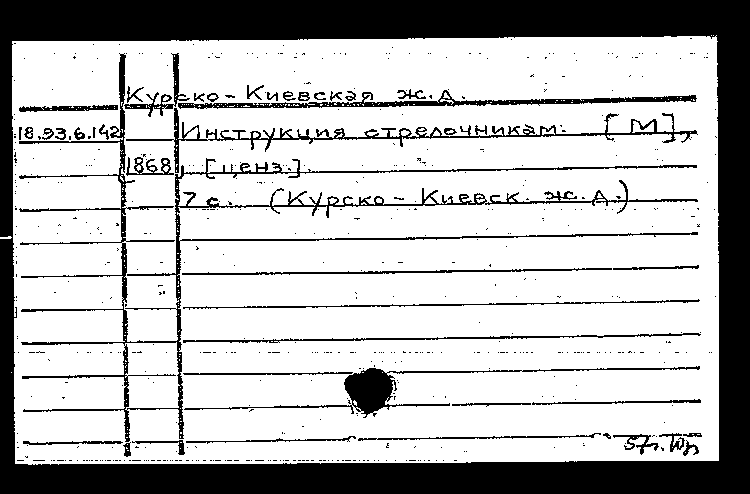 Курско-Киевская ж.д.
18.93.6.142 Инструкция стрелочникам. [М],
1868, [ценз.].
7 с. (Курско-Киевск. ж.д.)